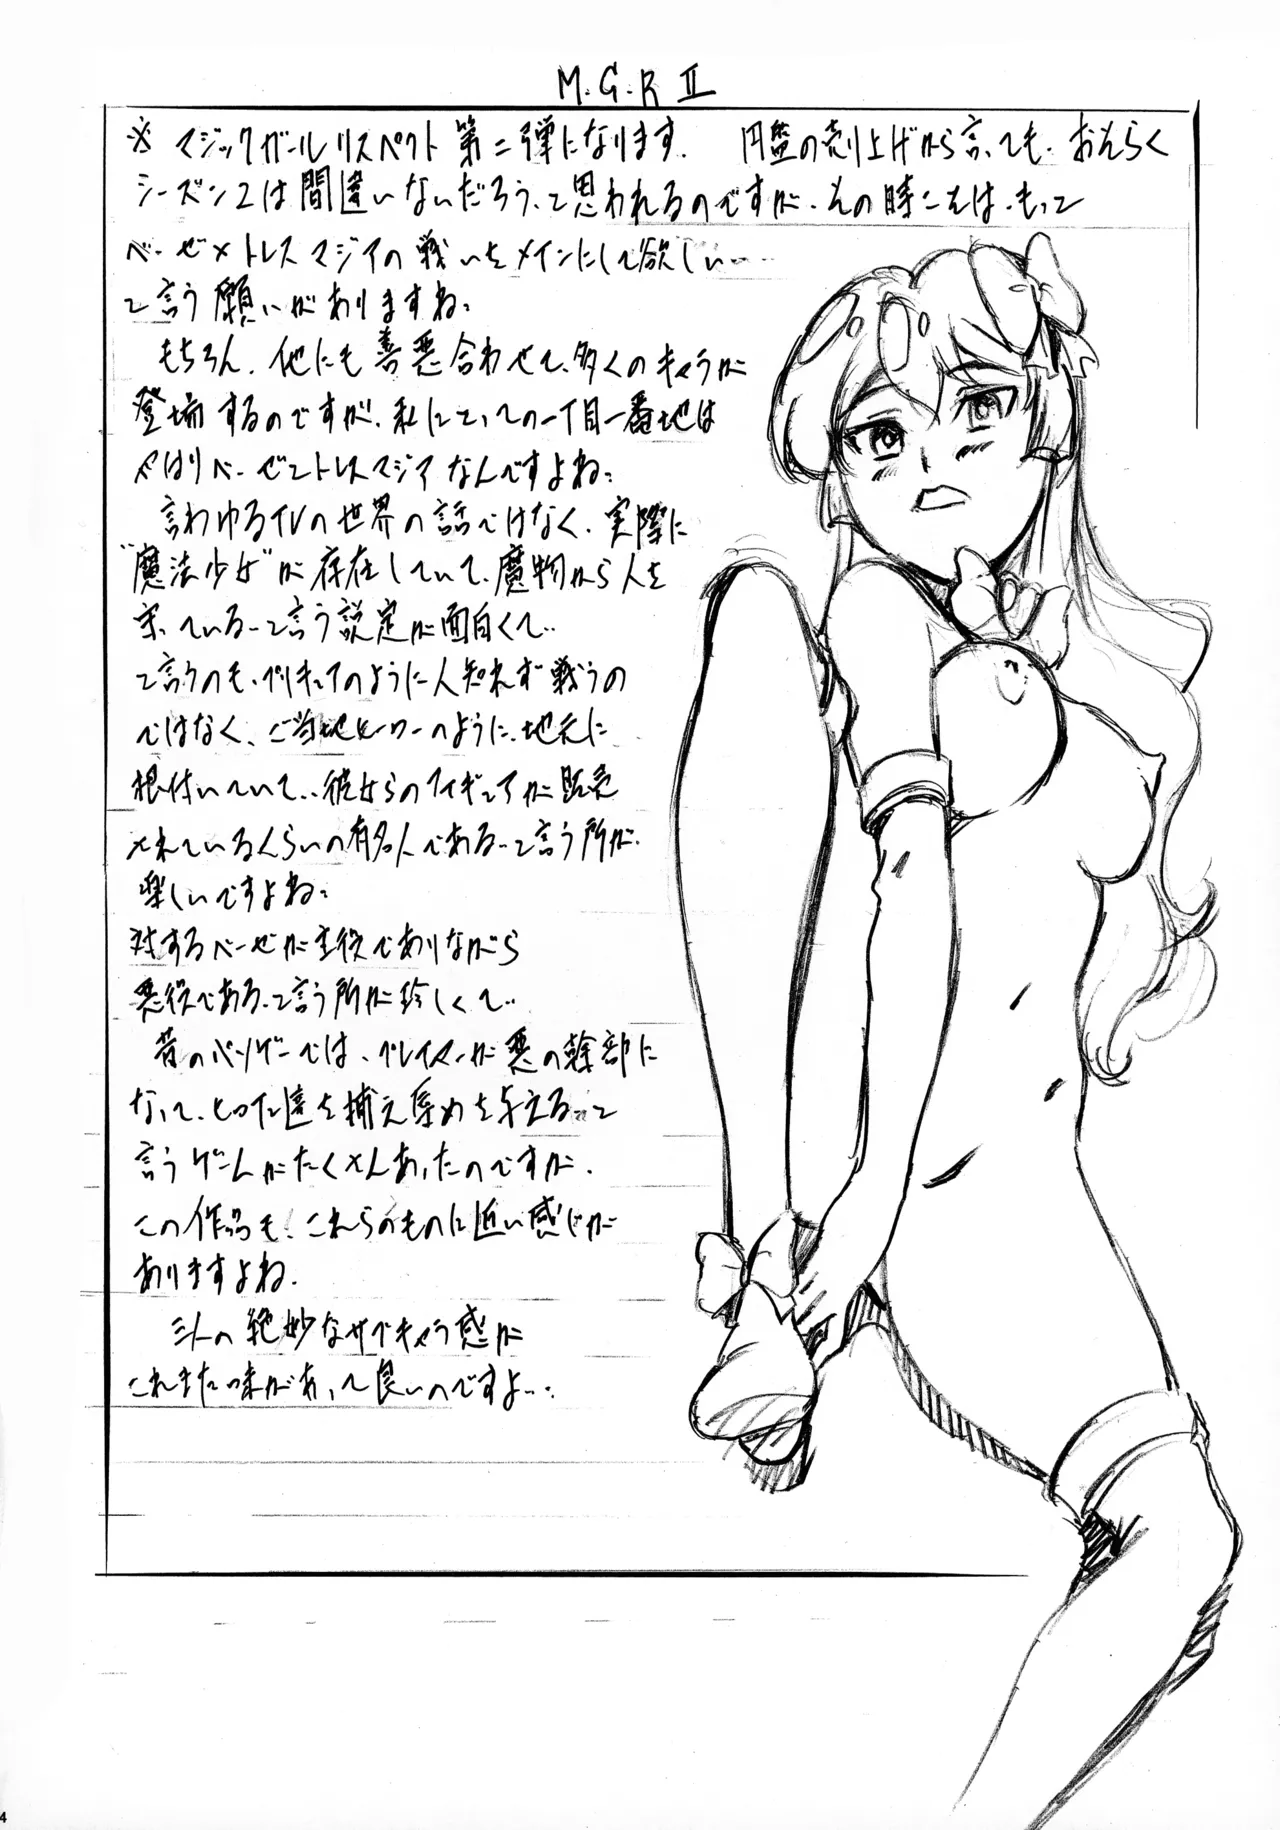 M.G.R II
※ マジックガールリスペクト 第二弾になります. 円盤の売り上げから言っても、おそらく
シーズン2は間違いないだろう、って思われるのですが、その時こそは、もって
ベーゼ×トレスマジアの戦いをメインにして欲しい…
と言う願いがありますね。
もちろん、他にも善悪合わせて、多くのキャラが
登場するのですが、私にとっての一丁目一番地は
やはりベーゼ トレスマジアなんですよね。
言わゆるTVの世界の話ではなく、実際に
"魔法少女"が存在していて、魔物から人を
守っている…と言う設定が面白くて…
と言うのも、プリキュアのように人知れず戦うの
ではなく、ご当地ヒーローのように、地元に
根付いていて…彼女らのフィギュアが販売
されているくらいの有名人である…と言う所が、
楽しいですよね。
対するベーゼが主役でありながら
悪役である、と言う所が珍しくて…
昔のパソゲーでは、プレイヤーが悪の幹部に
なって、 を捕え を与える…と
言うゲームがたくさんあったのですが、
この作品も、これらのものに近い感じが
ありますよね.
の絶妙なサブキャラ感が
これまた味があって良いのですよ…
4